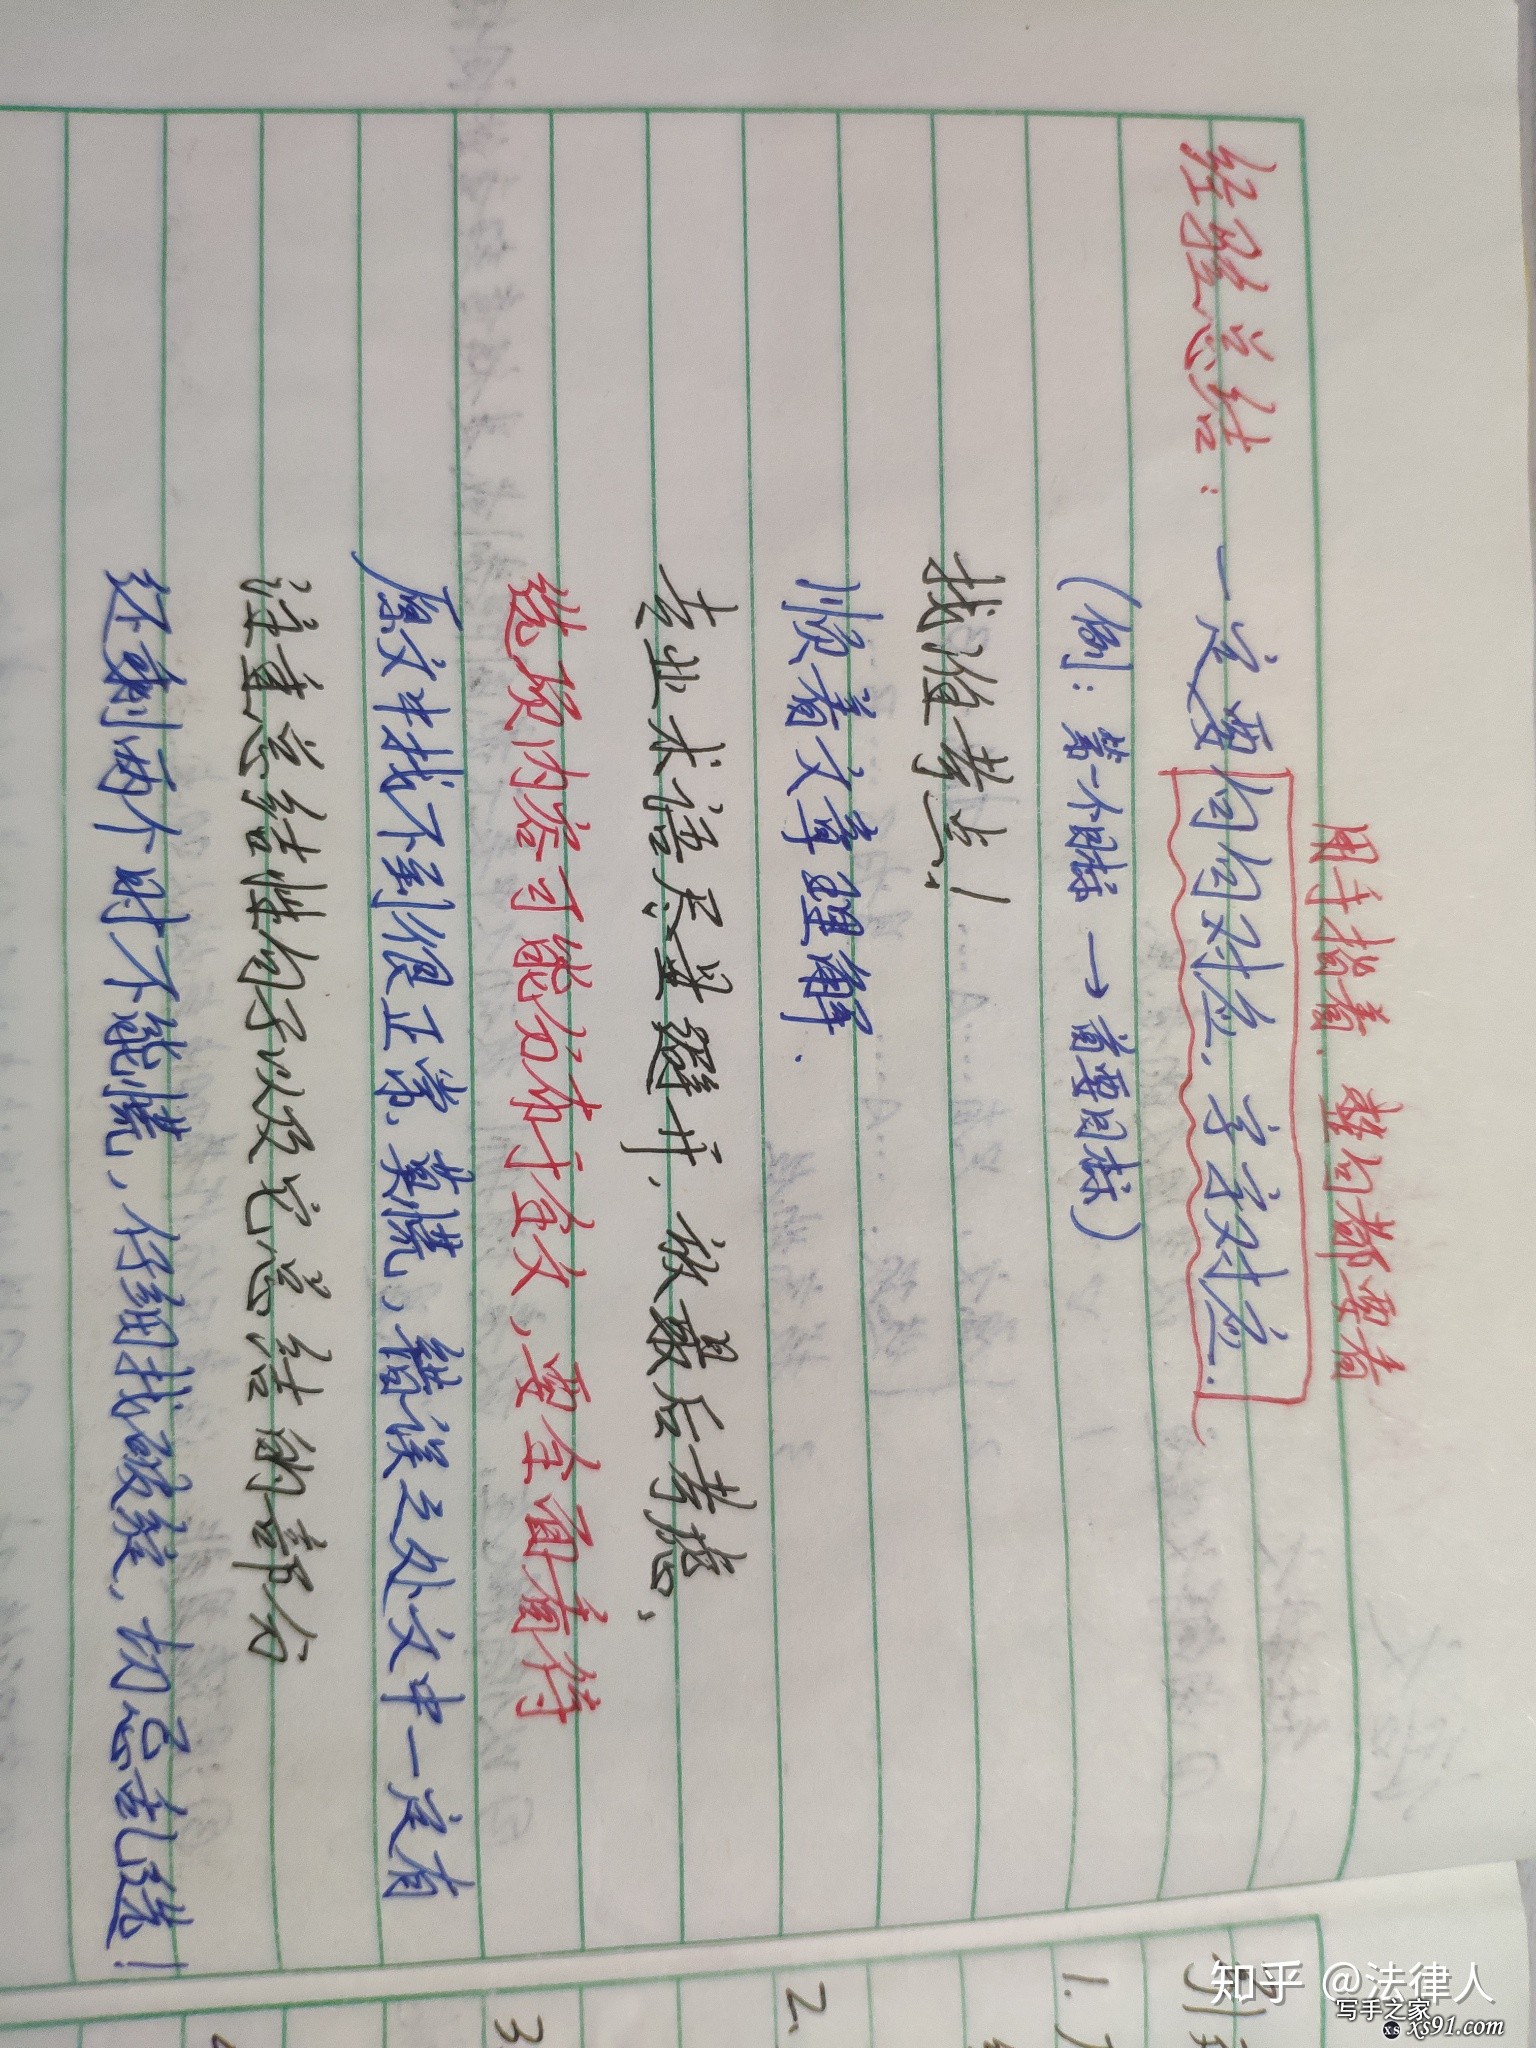 用手指着. 整句都要看
经验总结: 一定要句句对应. 字字对应.
(例: 第一个目标 → 首要目标)
找准考点!
顺着文章理解.
专业术语尽量避开, 放最后考虑,
选项内容可能分布于全文, 要全面看待
原文中找不到很正常, 莫慌, 错误之处文中一定有
注重总结性句子以及它总结的部分
还剩两个时不能慌, 仔细找破绽, 切忌乱选!
1.
2.
3.
知乎 @法律人
写手之家
xs xs91.com